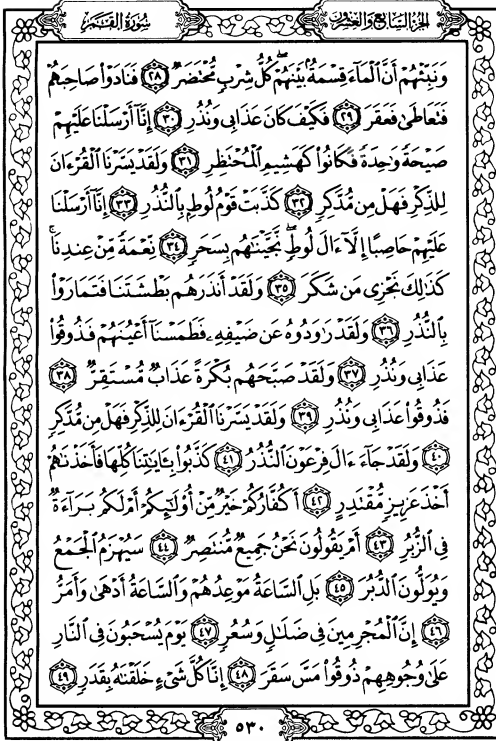 سُورَةُ القَمَر الجزء السابع والعشرون
وَنَبِّئْهُمْ أَنَّ ٱلْمَآءَ قِسْمَةٌۢ بَيْنَهُمْ ۖ كُلُّ شِرْبٍ مُّحْتَضَرٌ ٢٨ فَنَادَوْا۟ صَاحِبَهُمْ
فَتَعَاطَىٰ فَعَقَرَ ٢٩ فَكَيْفَ كَانَ عَذَابِى وَنُذُرِ ٣٠ إِنَّآ أَرْسَلْنَا عَلَيْهِمْ
صَيْحَةً وَٰحِدَةً فَكَانُوا۟ كَهَشِيمِ ٱلْمُحْتَظِرِ ٣١ وَلَقَدْ يَسَّرْنَا ٱلْقُرْءَانَ
لِلذِّكْرِ فَهَلْ مِن مُّدَّكِرٍ ٣٢ كَذَّبَتْ قَوْمُ لُوطٍۭ بِٱلنُّذُرِ ٣٣ إِنَّآ أَرْسَلْنَا
عَلَيْهِمْ حَاصِبًا إِلَّآ ءَالَ لُوطٍ ۖ نَّجَّيْنَٰهُم بِسَحَرٍ ٣٤ نِّعْمَةً مِّنْ عِندِنَا ۚ
كَذَٰلِكَ نَجْزِى مَن شَكَرَ ٣٥ وَلَقَدْ أَنذَرَهُم بَطْشَتَنَا فَتَمَارَوْا۟
بِٱلنُّذُرِ ٣٦ وَلَقَدْ رَٰوَدُوهُ عَن ضَيْفِهِۦ فَطَمَسْنَآ أَعْيُنَهُمْ فَذُوقُوا۟
عَذَابِى وَنُذُرِ ٣٧ وَلَقَدْ صَبَّحَهُم بُكْرَةً عَذَابٌ مُّسْتَقِرٌّ ٣٨
فَذُوقُوا۟ عَذَابِى وَنُذُرِ ٣٩ وَلَقَدْ يَسَّرْنَا ٱلْقُرْءَانَ لِلذِّكْرِ فَهَلْ مِن مُّدَّكِرٍ
٤٠ وَلَقَدْ جَآءَ ءَالَ فِرْعَوْنَ ٱلنُّذُرُ ٤١ كَذَّبُوا۟ بِـَٔايَٰتِنَا كُلِّهَا فَأَخَذْنَٰهُمْ
أَخْذَ عَزِيزٍ مُّقْتَدِرٍ ٤٢ أَكُفَّارُكُمْ خَيْرٌ مِّنْ أُو۟لَٰٓئِكُمْ أَمْ لَكُم بَرَآءَةٌ
فِى ٱلزُّبُرِ ٤٣ أَمْ يَقُولُونَ نَحْنُ جَمِيعٌ مُّنتَصِرٌ ٤٤ سَيُهْزَمُ ٱلْجَمْعُ
وَيُوَلُّونَ ٱلدُّبُرَ ٤٥ بَلِ ٱلسَّاعَةُ مَوْعِدُهُمْ وَٱلسَّاعَةُ أَدْهَىٰ وَأَمَرُّ
٤٦ إِنَّ ٱلْمُجْرِمِينَ فِى ضَلَٰلٍ وَسُعُرٍ ٤٧ يَوْمَ يُسْحَبُونَ فِى ٱلنَّارِ
عَلَىٰ وُجُوهِهِمْ ذُوقُوا۟ مَسَّ سَقَرَ ٤٨ إِنَّا كُلَّ شَىْءٍ خَلَقْنَٰهُ بِقَدَرٍ ٤٩
٥٣٠